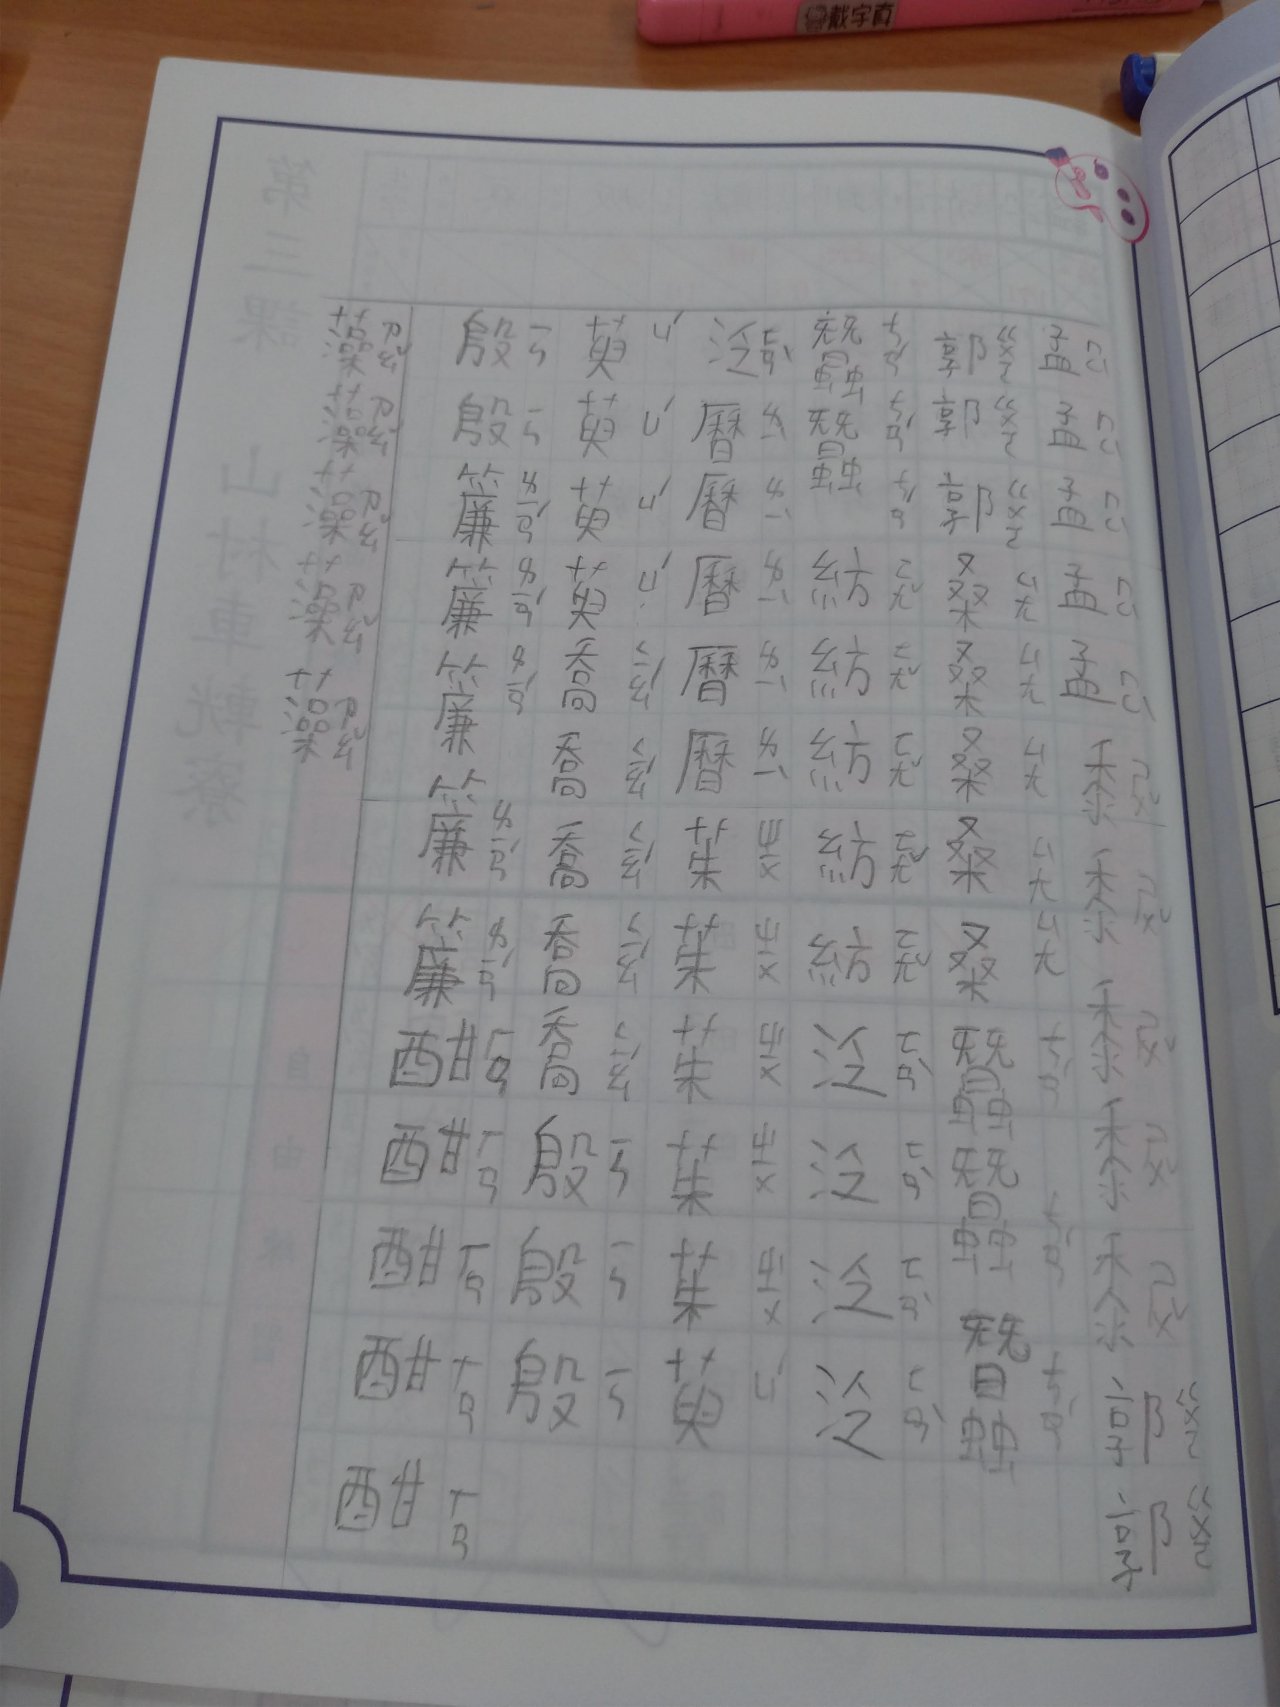 戴字真
孟孟孟孟孟黍ㄕㄨˇ黍ㄕㄨˇ黍ㄕㄨˇ黍ㄕㄨˇ黍ㄕㄨˇ郭ㄍㄨㄛ郭ㄍㄨㄛ
郭ㄍㄨㄛ郭ㄍㄨㄛ郭ㄍㄨㄛ桑ㄙㄤ桑ㄙㄤ桑ㄙㄤ桑ㄙㄤ桑ㄙㄤ蠶ㄘㄢˊ蠶ㄘㄢˊ蠶ㄘㄢˊ
蠶ㄘㄢˊ蠶ㄘㄢˊㄘㄢˊ紡ㄈㄤˇ紡ㄈㄤˇ紡ㄈㄤˇ紡ㄈㄤˇ紡ㄈㄤˇ
曆ㄌㄧˋ曆ㄌㄧˋ曆ㄌㄧˋ曆ㄌㄧˋ曆ㄌㄧˋ茱ㄓㄨ茱ㄓㄨ茱ㄓㄨ茱ㄓㄨ茱ㄓㄨ萸ㄩˊ
萸ㄩˊ萸ㄩˊ萸ㄩˊ萸ㄩˊ喬ㄑㄧㄠˊ喬ㄑㄧㄠˊ喬ㄑㄧㄠˊ喬ㄑㄧㄠˊ喬ㄑㄧㄠˊ殷ㄧㄢ殷ㄧㄢ殷ㄧㄢ
殷ㄧㄢ殷ㄧㄢ簾ㄌㄧㄢˊ簾ㄌㄧㄢˊ簾ㄌㄧㄢˊ簾ㄌㄧㄢˊ簾ㄌㄧㄢˊ酣ㄏㄢ酣ㄏㄢ酣ㄏㄢ酣ㄏㄢ酣ㄏㄢ
藻ㄗㄠˇ藻ㄗㄠˇ藻ㄗㄠˇ藻ㄗㄠˇ藻ㄗㄠˇ
第三課 山村車